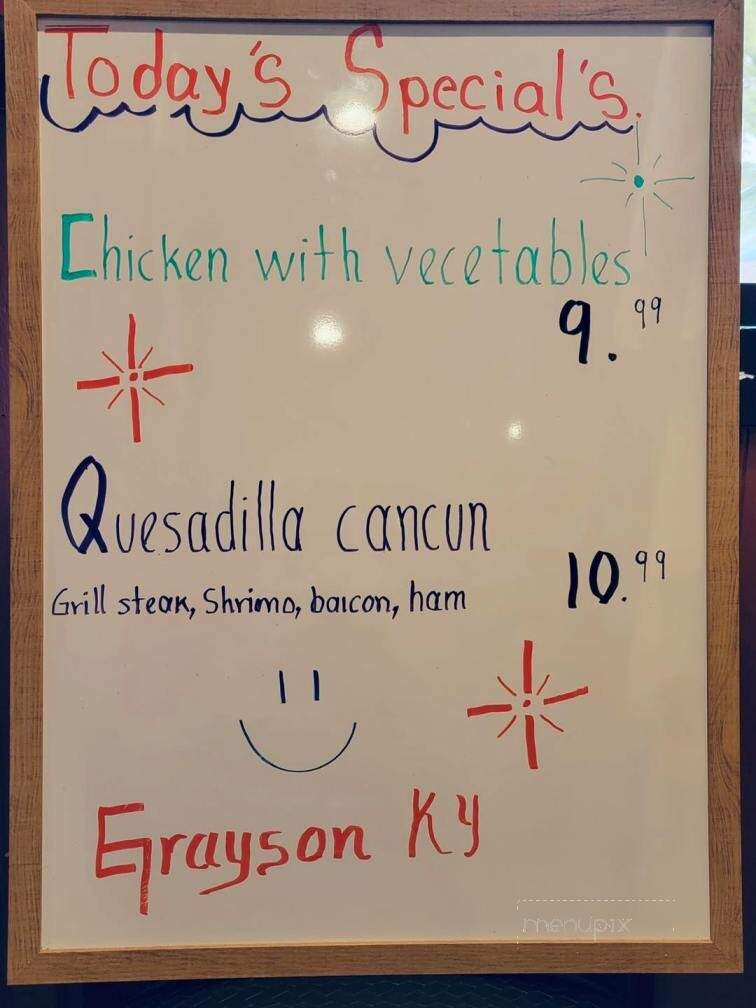 Today's Special's.
Chicken with vecetables
9.99
Quesadilla cancun
Grill steak, Shrimp, baicon, ham
10.99
Grayson KY
menupix